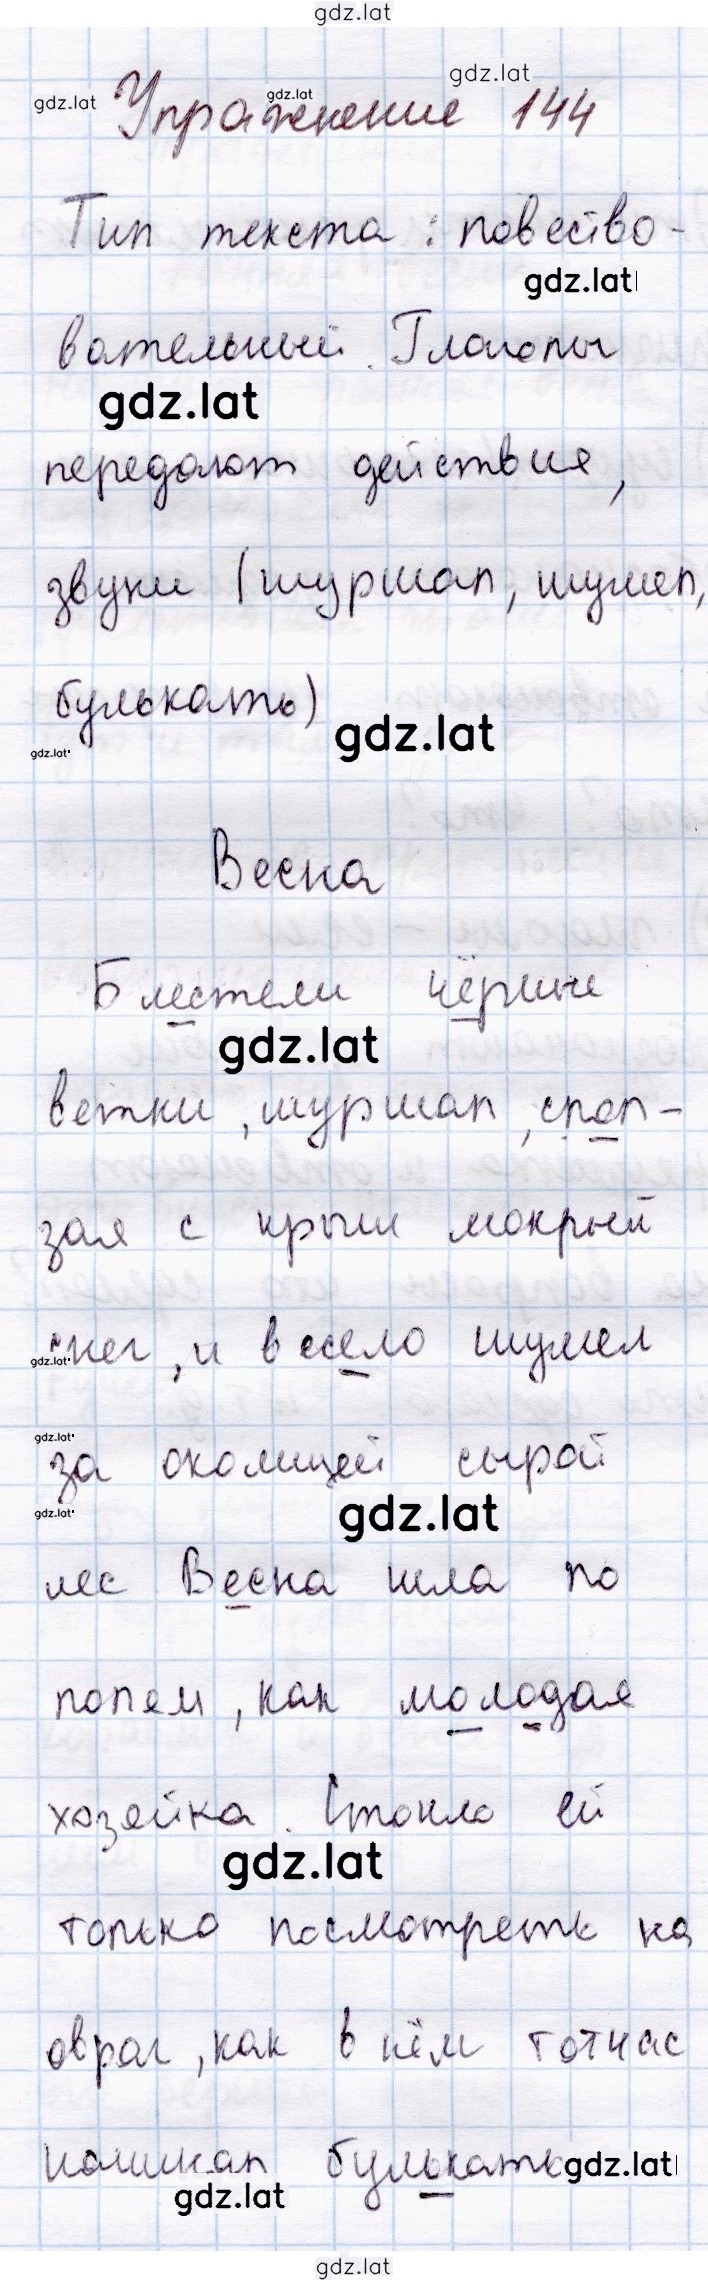 gdz.lat
gdz.lat
gdz.lat
gdz.lat
Упражнение 144
Тип текста: повество-
gdz.lat
вательный. Глаголы
gdz.lat
передают действия,
звуки (шуршал, шумел,
булькать)
gdz.lat
gdz.lat
Весна
Блестели чёрные
gdz.lat
ветки, шуршал, спол-
зая с крыш мокрый
снег, и весело шумел
gdz.lat
gdz.lat
за околицей сырой
gdz.lat
gdz.lat
лес Весна шла по
полям, как молодая
хозяйка. Стоило ей
gdz.lat
только посмотреть на
овраг, как в нём тотчас
начинал булькать
gdz.lat
gdz.lat
gdz.lat